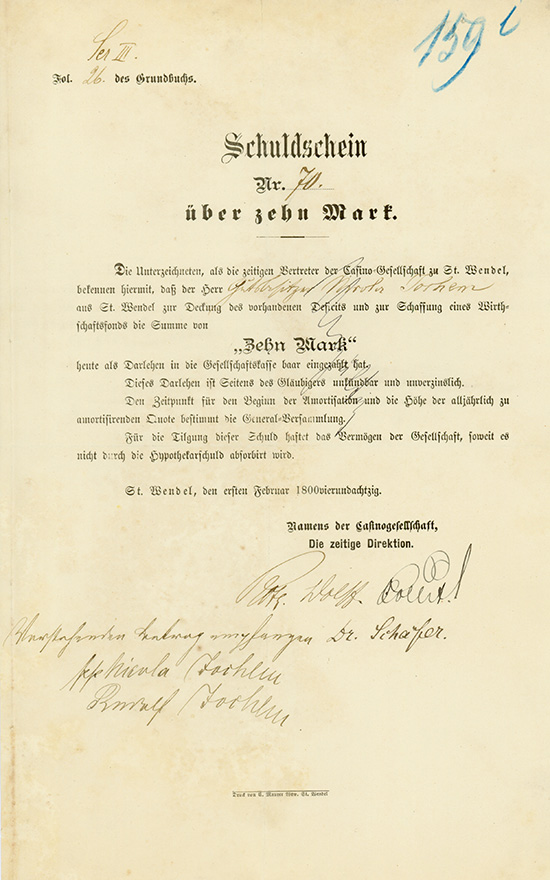 159 i
Ser III.
Fol. 26. des Grundbuchs.
Schuldschein
Nr. 70.
über zehn Mark.
Die Unterzeichneten, als die zeitigen Vertreter der Casino-Gesellschaft zu St. Wendel,
bekennen hiermit, daß der Herr Nicola Jochem
aus St. Wendel zur Deckung des vorhandenen Deficits und zur Schaffung eines Wirth-
schaftsfonds die Summe von
„Zehn Mark“
heute als Darlehen in die Gesellschaftskasse baar eingezahlt hat.
Dieses Darlehen ist Seitens des Gläubigers unkündbar und unverzinslich.
Den Zeitpunkt für den Beginn der Amortisation und die Höhe der alljährlich zu
amortisirenden Quote bestimmt die General-Versammlung.
Für die Tilgung dieser Schuld haftet das Vermögen der Gesellschaft, soweit es
nicht durch die Hypothekarschuld absorbirt wird.
St. Wendel, den ersten Februar 1800vierundachtzig.
Namens der Casinogesellschaft,
Die zeitige Direktion.
Wolff.
Vorstehenden Betrag empfangen Dr. Schäfer.
Nicola Jochem
Rudolf Jochem
Druck von C. Maurer Wwe. St. Wendel